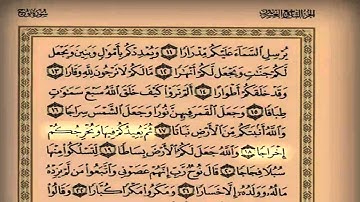 سورة نوح الجزء التاسع والعشرون
يُرْسِلِ السَّمَاءَ عَلَيْكُم مِّدْرَارًا ١١ وَيُمْدِدْكُم بِأَمْوَالٍ وَبَنِينَ وَيَجْعَل
لَّكُمْ جَنَّاتٍ وَيَجْعَل لَّكُمْ أَنْهَارًا ١٢ مَّا لَكُمْ لَا تَرْجُونَ لِلَّهِ وَقَارًا ١٣
وَقَدْ خَلَقَكُمْ أَطْوَارًا ١٤ أَلَمْ تَرَوْا كَيْفَ خَلَقَ اللَّهُ سَبْعَ سَمَاوَاتٍ
طِبَاقًا ١٥ وَجَعَلَ الْقَمَرَ فِيهِنَّ نُورًا وَجَعَلَ الشَّمْسَ سِرَاجًا ١٦
وَاللَّهُ أَنبَتَكُم مِّنَ الْأَرْضِ نَبَاتًا ١٧ ثُمَّ يُعِيدُكُمْ فِيهَا وَيُخْرِجُكُمْ
إِخْرَاجًا ١٨ وَاللَّهُ جَعَلَ لَكُمُ الْأَرْضَ بِسَاطًا ١٩ لِّتَسْلُكُوا مِنْهَا
سُبُلًا فِجَاجًا ٢٠ قَالَ نُوحٌ رَّبِّ إِنَّهُمْ عَصَوْنِي وَاتَّبَعُوا مَن لَّمْ يَزِدْهُ
مَالُهُ وَوَلَدُهُ إِلَّا خَسَارًا ٢١ وَمَكَرُوا مَكْرًا كُبَّارًا ٢٢ وَقَالُوا